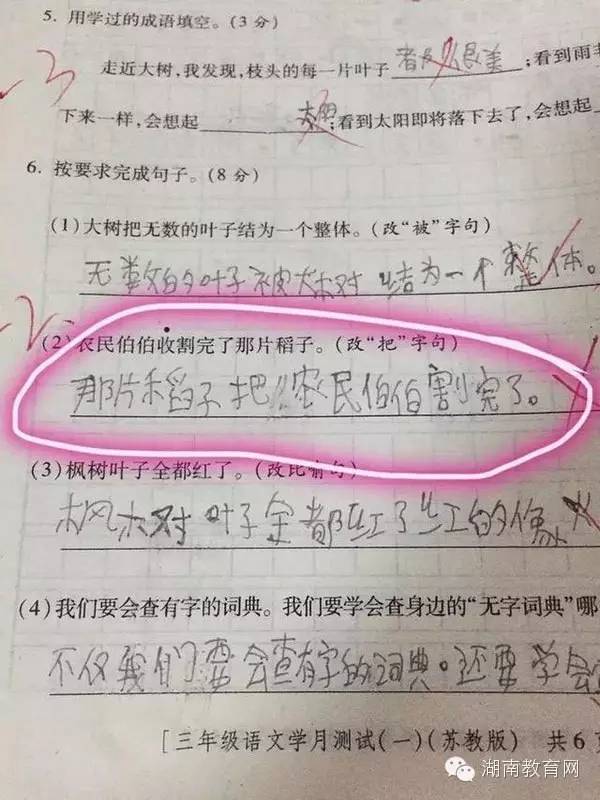 5. 用学过的成语填空。(3 分)
-3
走近大树,我发现,枝头的每一片叶子 都很美 ;看到雨
下来一样,会想起 ;看到太阳即将落下去了,会想起
6. 按要求完成句子。(8 分)
(1)大树把无数的叶子结为一个整体。(改“被”字句)
无数的叶子被大树 结为一个整体。
-2
(2)农民伯伯收割完了那片稻子。(改“把”字句)
那片稻子把农民伯伯割完了。
(3)枫树叶子全都红了。(改比喻句)
枫树叶子全都红了红的像
(4)我们要会查有字的词典。我们要学会查身边的“无字词典”哪
不仅我们要会查有字的词典。还要学会
[三年级语文学月测试(一)(苏教版) 共6页
湖南教育网